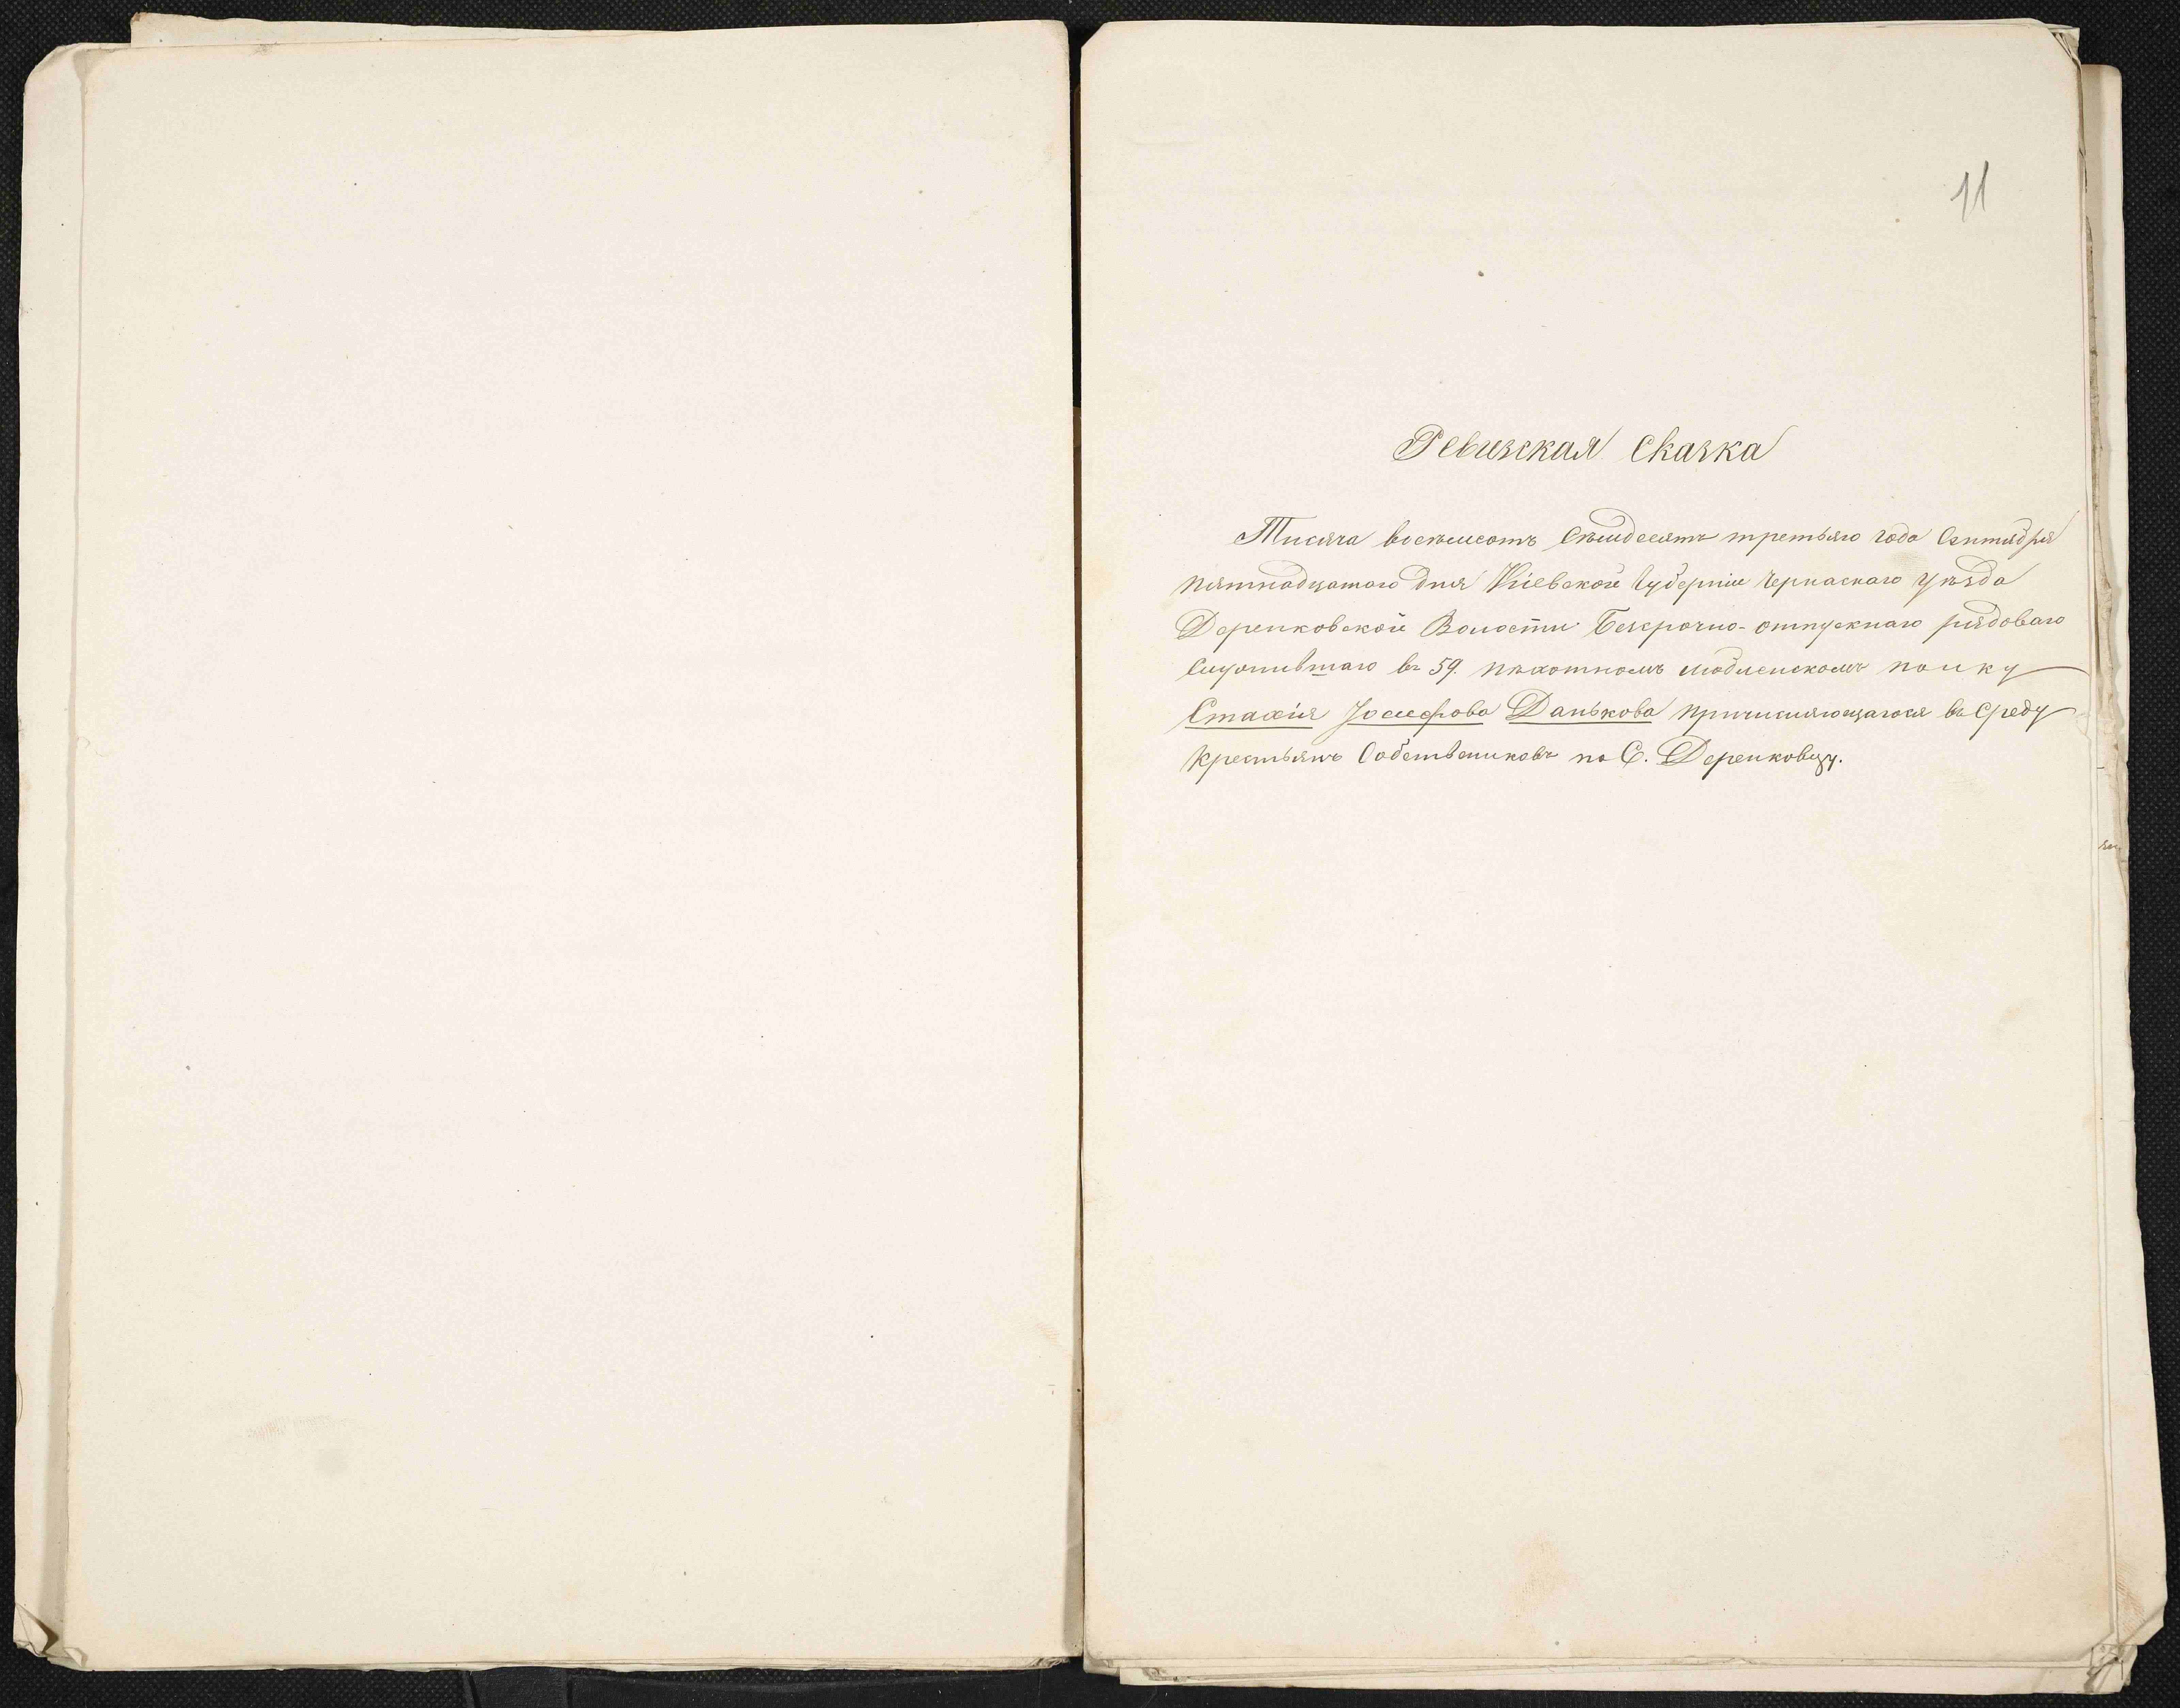 11
Ревизская Сказка
Тисяча восемсотъ Сѣмдесятъ третьяго года Сентября
пятнадцатого дня Кіевской Губерніи Черкаскаго Уѣзда
Деренковской Волости Безсрочно-отпускнаго рядоваго
Служившаго въ 59. пѣхотномъ Люблинскомъ полку
Стахія Іосифова Данькова причисляющагося въ Среду
Крестьянъ Собствениковъ по С. Деренковцу.